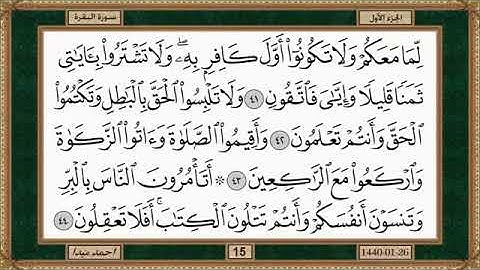 الجزء الأول
سورة البقرة
لِّمَا مَعَكُمْ وَلَا تَكُونُوٓا۟ أَوَّلَ كَافِرٍۭ بِهِۦ ۖ وَلَا تَشْتَرُوا۟ بِـَٔايَٰتِى
ثَمَنًا قَلِيلًا وَإِيَّٰىَ فَٱتَّقُونِ ٤١ وَلَا تَلْبِسُوا۟ ٱلْحَقَّ بِٱلْبَٰطِلِ وَتَكْتُمُوا۟
ٱلْحَقَّ وَأَنتُمْ تَعْلَمُونَ ٤٢ وَأَقِيمُوا۟ ٱلصَّلَوٰةَ وَءَاتُوا۟ ٱلزَّكَوٰةَ
وَٱرْكَعُوا۟ مَعَ ٱلرَّٰكِعِينَ ٤٣ ۞ أَتَأْمُرُونَ ٱلنَّاسَ بِٱلْبِرِّ
وَتَنسَوْنَ أَنفُسَكُمْ وَأَنتُمْ تَتْلُونَ ٱلْكِتَٰبَ ۚ أَفَلَا تَعْقِلُونَ ٤٤
1440-01-26
15